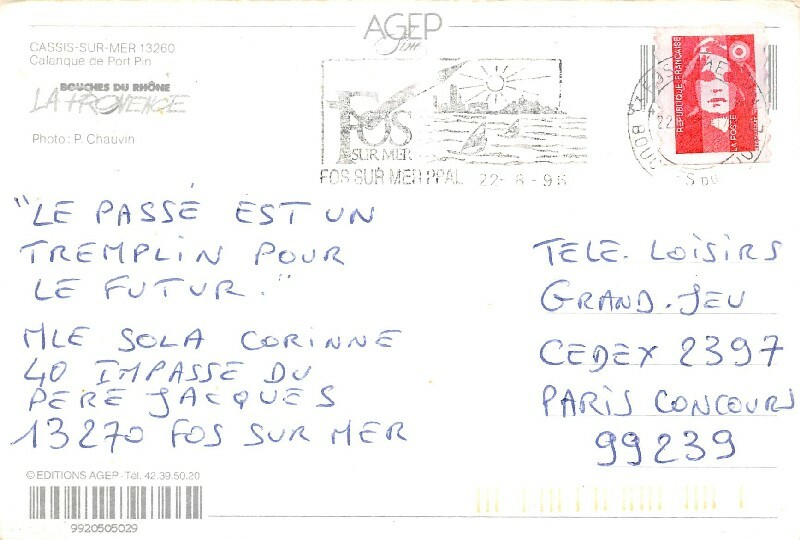 AGEP
CASSIS-SUR-MER 13260
Calanque de Port Pin
BOUCHES DU RHÔNE
LA PROVENCE
Photo : P. Chauvin
FOS
SUR MER
FOS SUR MER PPAL 22-8-96
REPUBLIQUE FRANÇAISE
LA POSTE
"LE PASSÉ EST UN
TREMPLIN POUR
LE FUTUR."
MLE SOLA CORINNE
40 IMPASSE DU
PERE JACQUES
13270 FOS SUR MER
TELE. LOISIRS
GRAND. JEU
CEDEX 2397
PARIS CONCOURS
99239
© EDITIONS AGEP - Tél. 42.39.50.20
9920505029